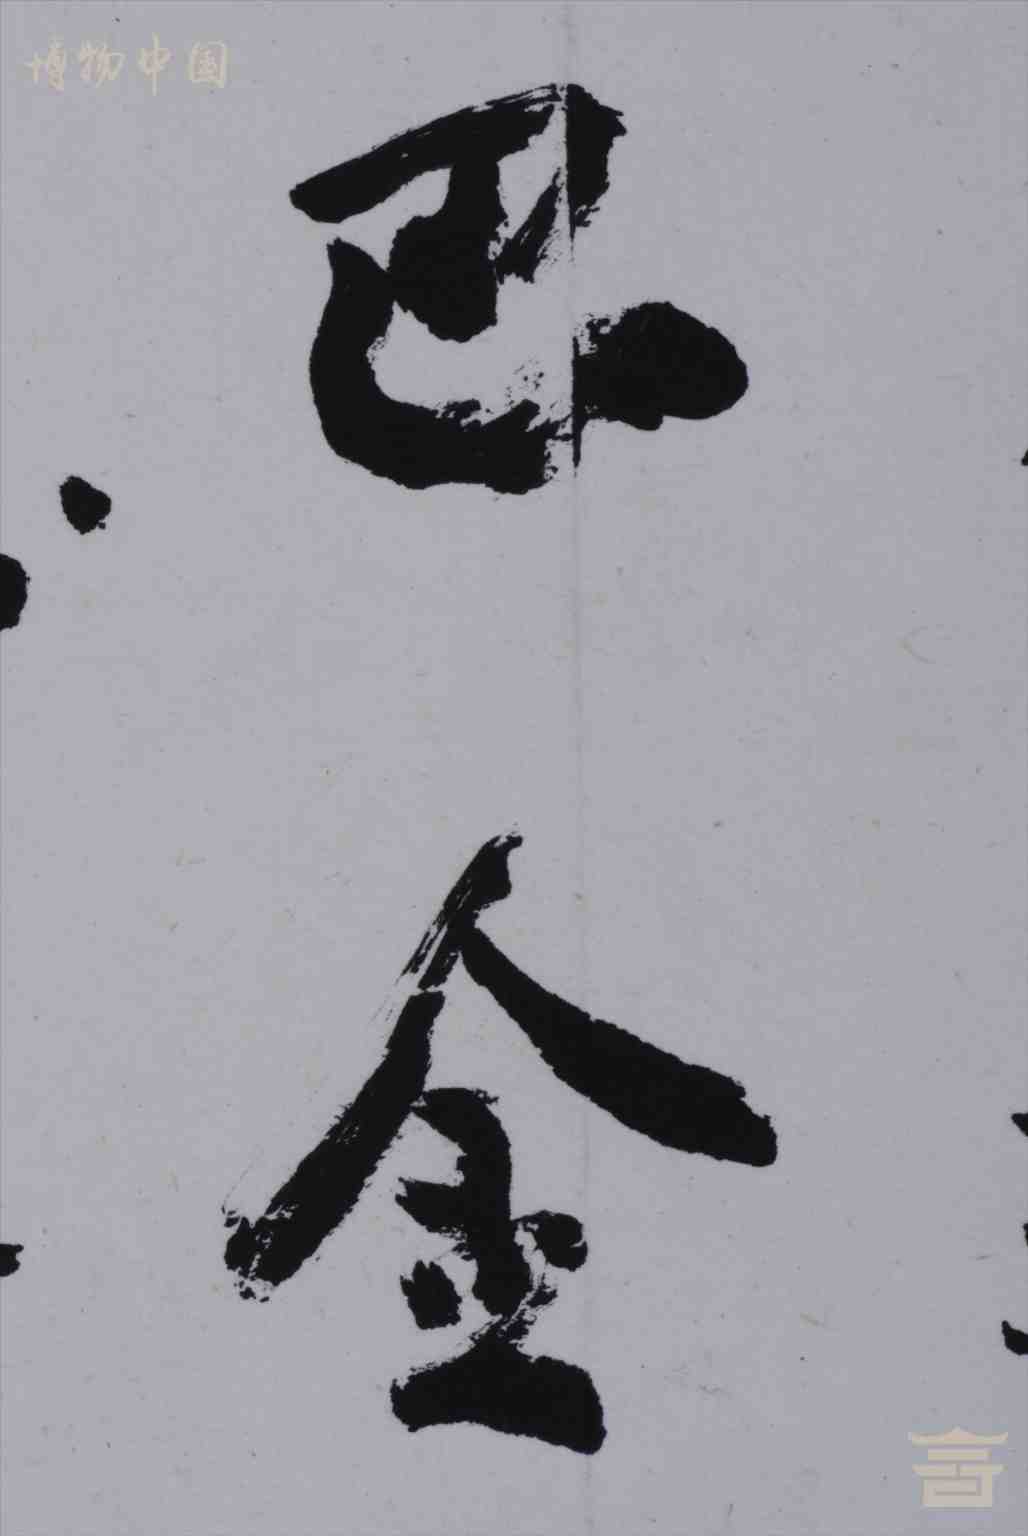 博物中国
巴
金